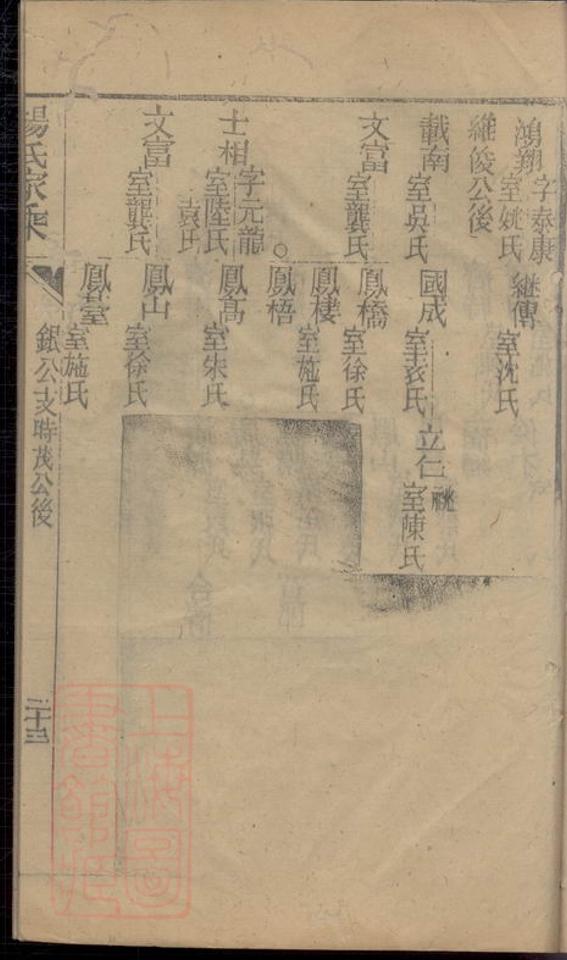 鴻翔 字泰康
室姚氏
繼傳
室沈氏
維俊公後
載南
室吳氏
國成
室袁氏
立仁 祧
室陳氏
文富
室龔氏
鳳橋
室徐氏
鳳棲
室施氏
鳳梧
士相 字元龍
室陸氏
袁氏
鳳高
室朱氏
文富
室龔氏
鳳山
室徐氏
鳳室
室施氏
銀公支時茂公後
楊氏家乘
二十三
上海圖書館藏